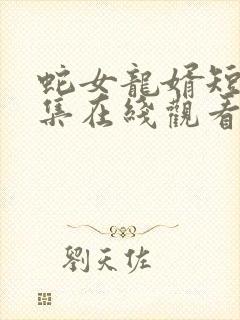 蛇女龍婿短
集在綫觀看
劉天佐